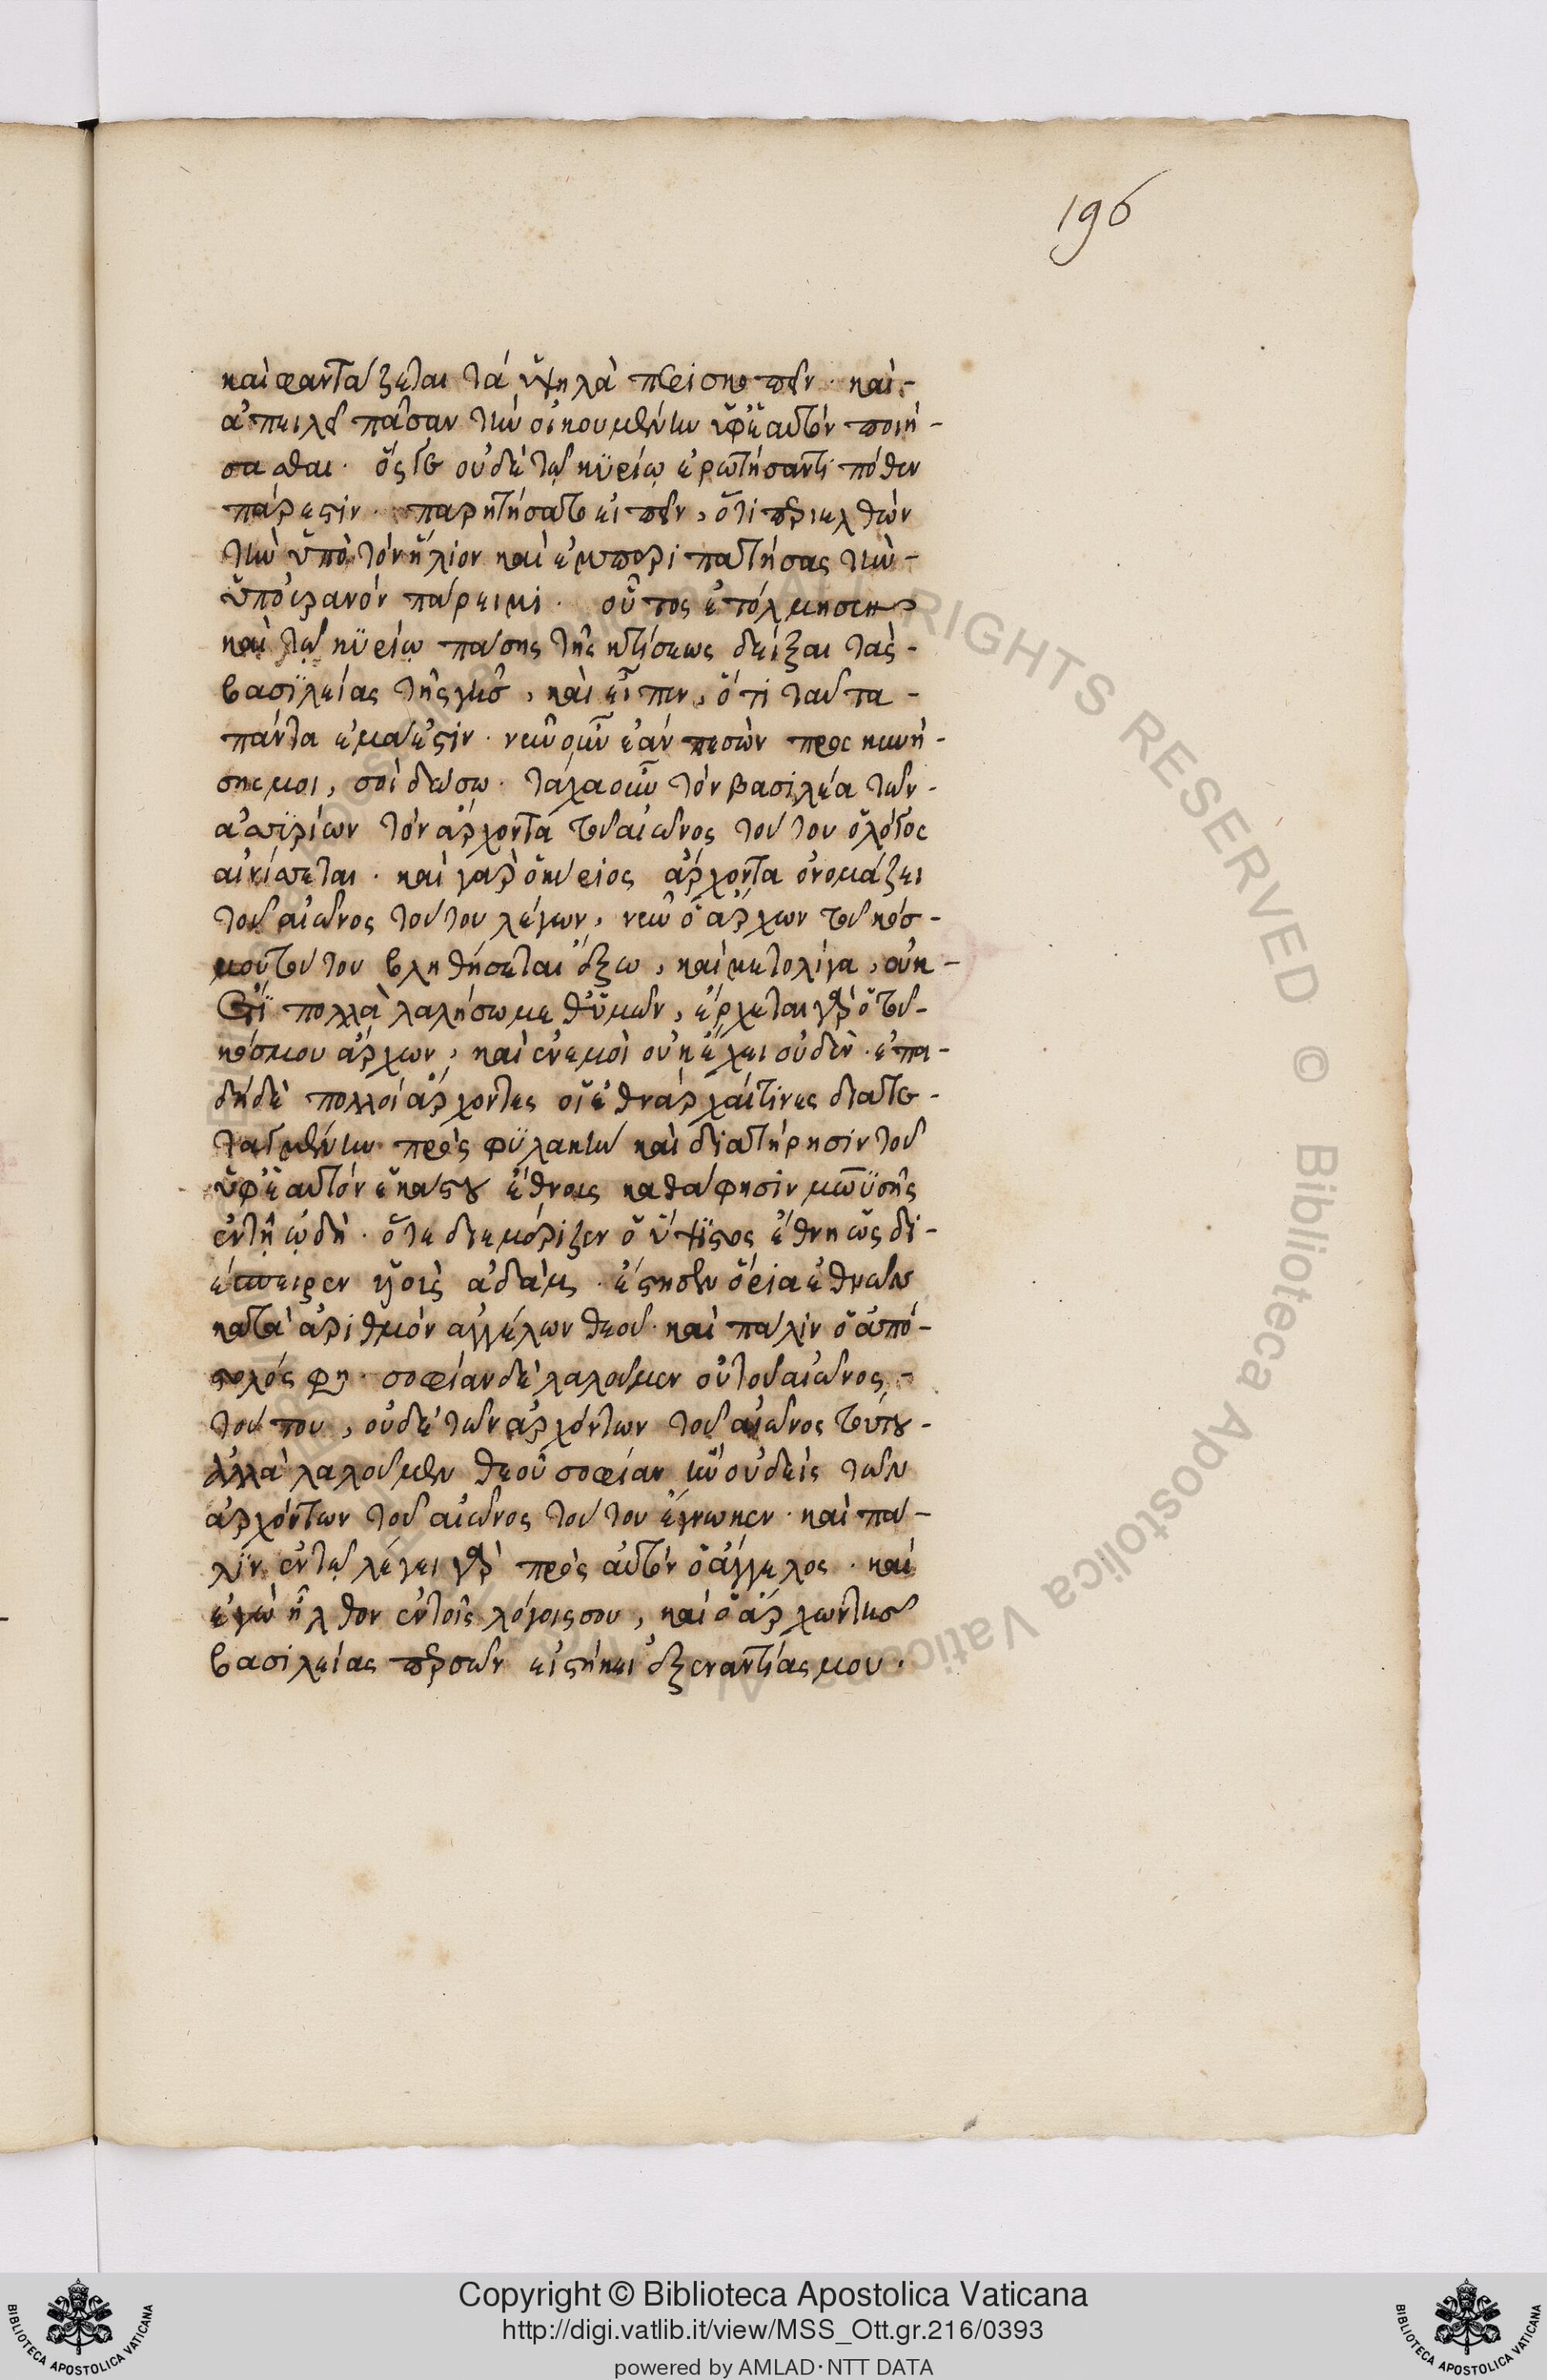 196
καὶ φαντάζεται τὰ ὑψηλὰ περισκοπεῖν· καὶ-
ἀπειλεῖ πᾶσαν τὴν οἰκουμένην ὑφ' ἑαυτὸν ποιή-
σασθαι· ὅς γε οὐδὲ τῷ κϋρίῳ ἐρωτήσαντι πόθεν
πάρεστιν· παρητήσατο εἰπεῖν, ὅτι περιελθὼν
τὴν ὑπὸ τὸν ἥλιον καὶ ἐμπεριπατήσας τὴν-
ὑπ' οὐρανὸν πάρειμι· οὗτος ἐτόλμησεν
καὶ τῷ κϋρίῳ πάσης τῆς κτίσεως δεῖξαι τὰς-
βασϊλείας τῆς γῆς, καὶ εἶπεν, ὅτι ταῦτα-
πάντα ἐμά ἐστιν· νῦν οὖν ἐὰν πεσὼν προσκυνή-
σης μοι, σοὶ δώσω· τάχα οὖν τὸν βασιλέα τῶν-
ἀσϊρίων τὸν ἄρχοντα τοῦ αἰῶνος τούτου ὁ λόγος
αἰνίττεται· καὶ γὰρ ὁ κύριος ἄρχοντα ὀνομάζει
τοῦ αἰῶνος τούτου λέγων, νῦν ὁ ἄρχων τοῦ κόσ-
μου τούτου βληθήσεται ἔξω, καὶ μετ' ολίγα, οὐκ-
έτϊ πολλὰ λαλήσω μεθ' ὑμῶν, ἔρχεται γὰρ ὁ τοῦ-
κόσμου ἄρχων, καὶ ἐν ἐμοὶ οὐκ ἔχει οὐδέν· ἐπει-
δὴ δὲ πολλοὶ ἄρχοντες οἱ ἐθνάρχαί τινες διατε-
ταγμένην πρὸς φϋλακὴν καὶ διατήρησιν τοῦ
ὑφ' ἑαυτὸν ἑκάστου ἔθνους καθά φησιν μωϋσῆς
ἐν τῇ ᾠδῇ· ὅτε διεμέριζεν ὁ ὕψϊστος ἔθνη ὡς δι-
έσπειρεν υἱοὺς ἀδὰμ· ἔστησεν ὅρια ἐθνῶν
κατὰ ἀριθμὸν ἀγγέλων θεοῦ· καὶ πάλιν ὁ ἀπό-
στολός φη· σοφίαν δὲ λαλοῦμεν οὐ τοῦ αἰῶνος-
τούτου, οὐδὲ τῶν ἀρχόντων τοῦ αἰῶνος τούτου-
ἀλλὰ λαλοῦμεν θεοῦ σοφίαν ἣν οὐδεὶς τῶν
ἀρχόντων τοῦ αἰῶνος τούτου ἔγνωκεν· καὶ πά-
λϊν ἐν τῷ λέγει γὰρ πρὸς αὐτὸν ὁ ἄγγελος· καὶ
ἐγὼ ἦλθον ἐν τοῖς λόγοις σου, καὶ ὁ ἄρχων τῆς
βασιλείας περσῶν εἱστήκει ἐξεναντίας μου·
ALL RIGHTS RESERVED © Biblioteca Apostolica Vaticana
Copyright © Biblioteca Apostolica Vaticana
http://digi.vatlib.it/view/MSS_Ott.gr.216/0393
powered by AMLAD·NTT DATA
BIBLIOTECA APOSTOLICA VATICANA
BIBLIOTECA APOSTOLICA VATICANA